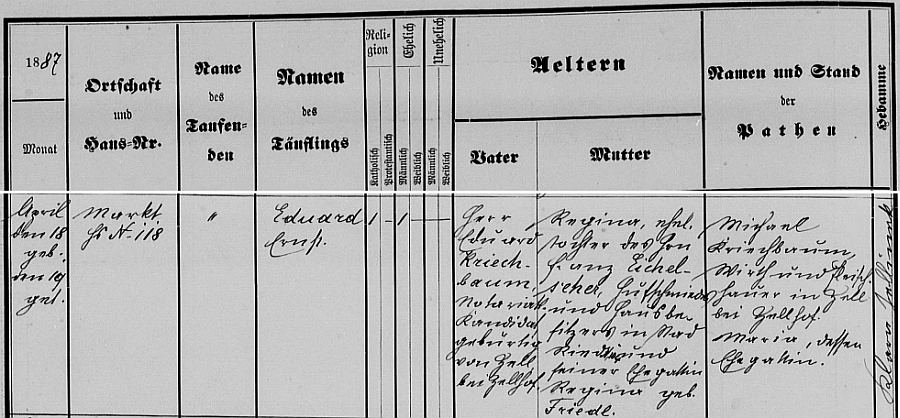 1887
Monat
Ortschaft
und
Haus-Nr.
Name
des
Taufen-
den
Namen
des
Täuflings
Reli-
gion
Katholisch
Protestantisch
Ehelich
Männlich
Weiblich
Unehelich
Männlich
Weiblich
Aeltern
Vater
Mutter
Namen und Stand
der
Pathen
Hebamme
April
den 18
geb.
den 19
get.
Markt
Hs N. 118
"
Eduard
Ernst.
1 – 1 –
Herr
Eduard
Kriech-
baum,
Notariats
Kandidat
gebürtig
von Zell
bei Zellhof.
Regina, ehel.
Tochter des Hrn
Franz Eichel-
seher, Hufschmiedes
und Hausbe-
sitzers in Stad
Ried und
seiner Ehegattin
Regina geb.
Friedl.
Michael
Kriechbaum,
Wirth und Fleisch
hauer in Zell
bei Zellhof.
Maria, dessen
Ehegattin.